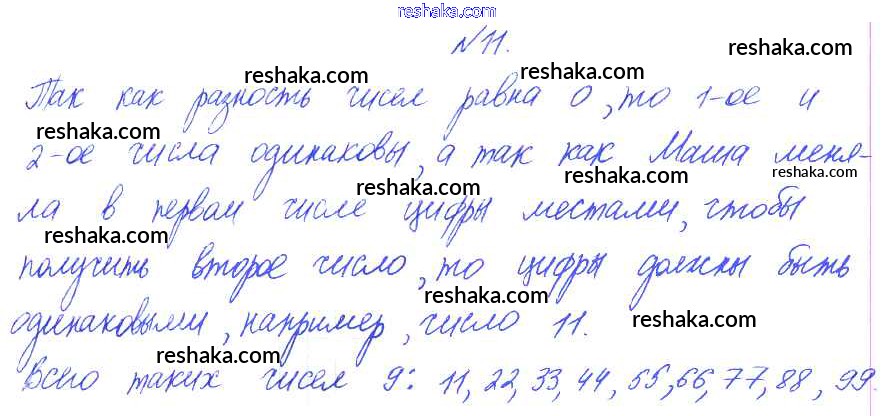 reshaka.com
№11.
reshaka.com reshaka.com
Так как разность чисел равна 0, то 1-ое и
reshaka.com reshaka.com
2-ое числа одинаковы, а так как Маша меня-
reshaka.com reshaka.com reshaka.com
ла в первом числе цифры местами, чтобы
reshaka.com reshaka.com
получить второе число, то цифры должны быть
reshaka.com reshaka.com
одинаковыми, например, число 11.
reshaka.com reshaka.com
Всего таких чисел 9: 11, 22, 33, 44, 55, 66, 77, 88, 99.